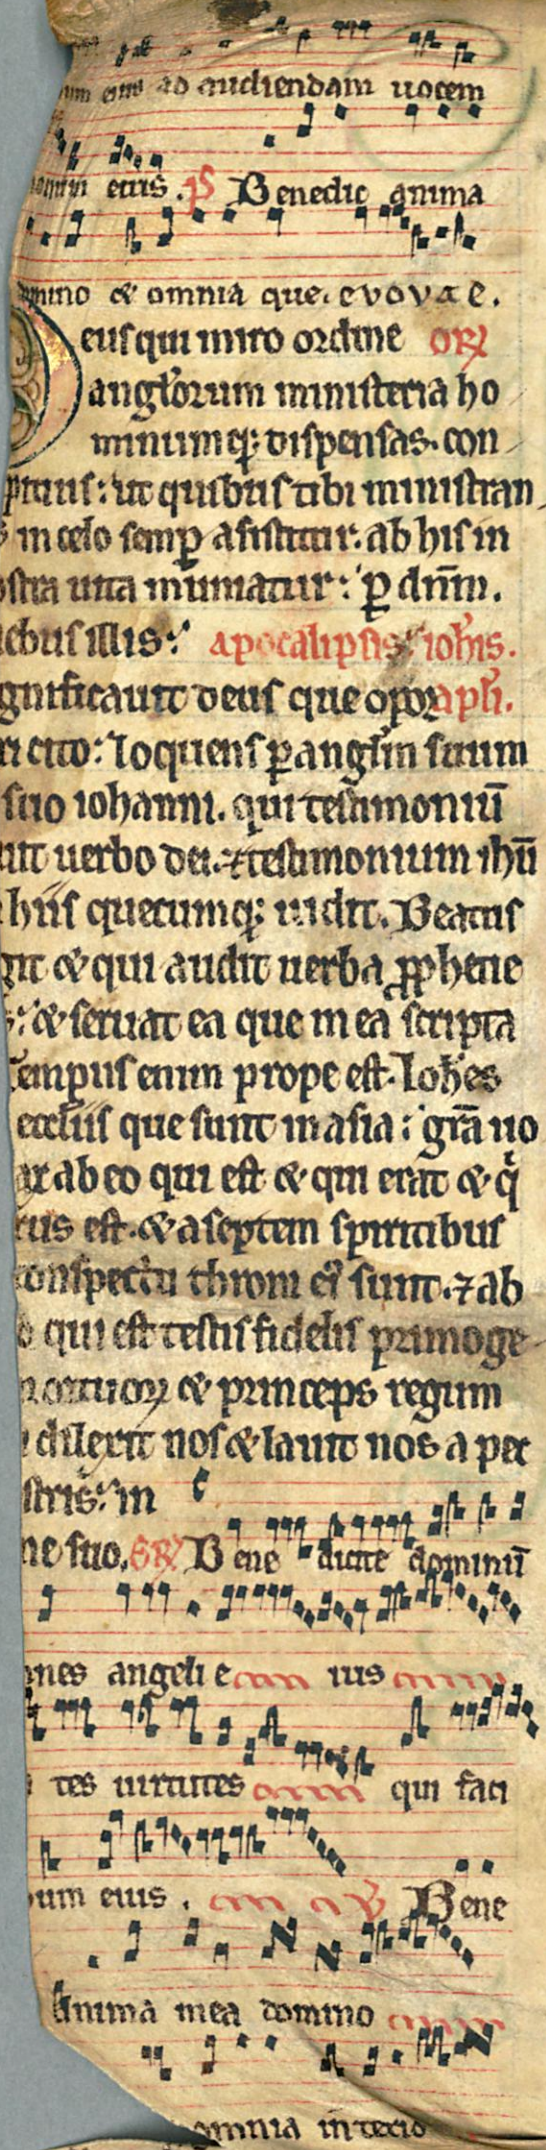 eius ad audiendam uocem
eius. ps Benedic anima
domino & omnia que. evovae.
eus qui miro ordine or̃
angl̃orum ministeria ho
minumq; dispensas. con
ut quibus tibi ministran
in celo semp̱ assistitur. ab his in
ostra uita muniatur: p̱ dñm.
ebus illis: apocalipsis ioh̃is.
gnificauit deus que opor apl̃i.
ri cito: loquens p̱ angl̃m suum
suo iohanni. qui testimoniũ
uit uerbo dei. ⁊ testimonium ihũ
hiis quecumq; uidit. Beatus
git & qui audit uerba ꝓphetie
: & seruat ea que in ea scripta
tempus enim prope est. Ioh̃es
eccl̃iis que sunt in asia: grã uo
ax ab eo qui est & qui erat & q̇
rus est. & a septem spiritibus
conspectu throni ei᾽ sunt. ⁊ ab
o qui est testis fidelis primoge
mortuoꝝ & princeps regum
dilexit nos & lauit nos a pec
stris: in
ne suo. GR̃ Bene dicite dominũ
mnes angeli e ius
tes uirtutes qui faci
um eius. ꝟ Bene
Anima mea domino
omnia interio